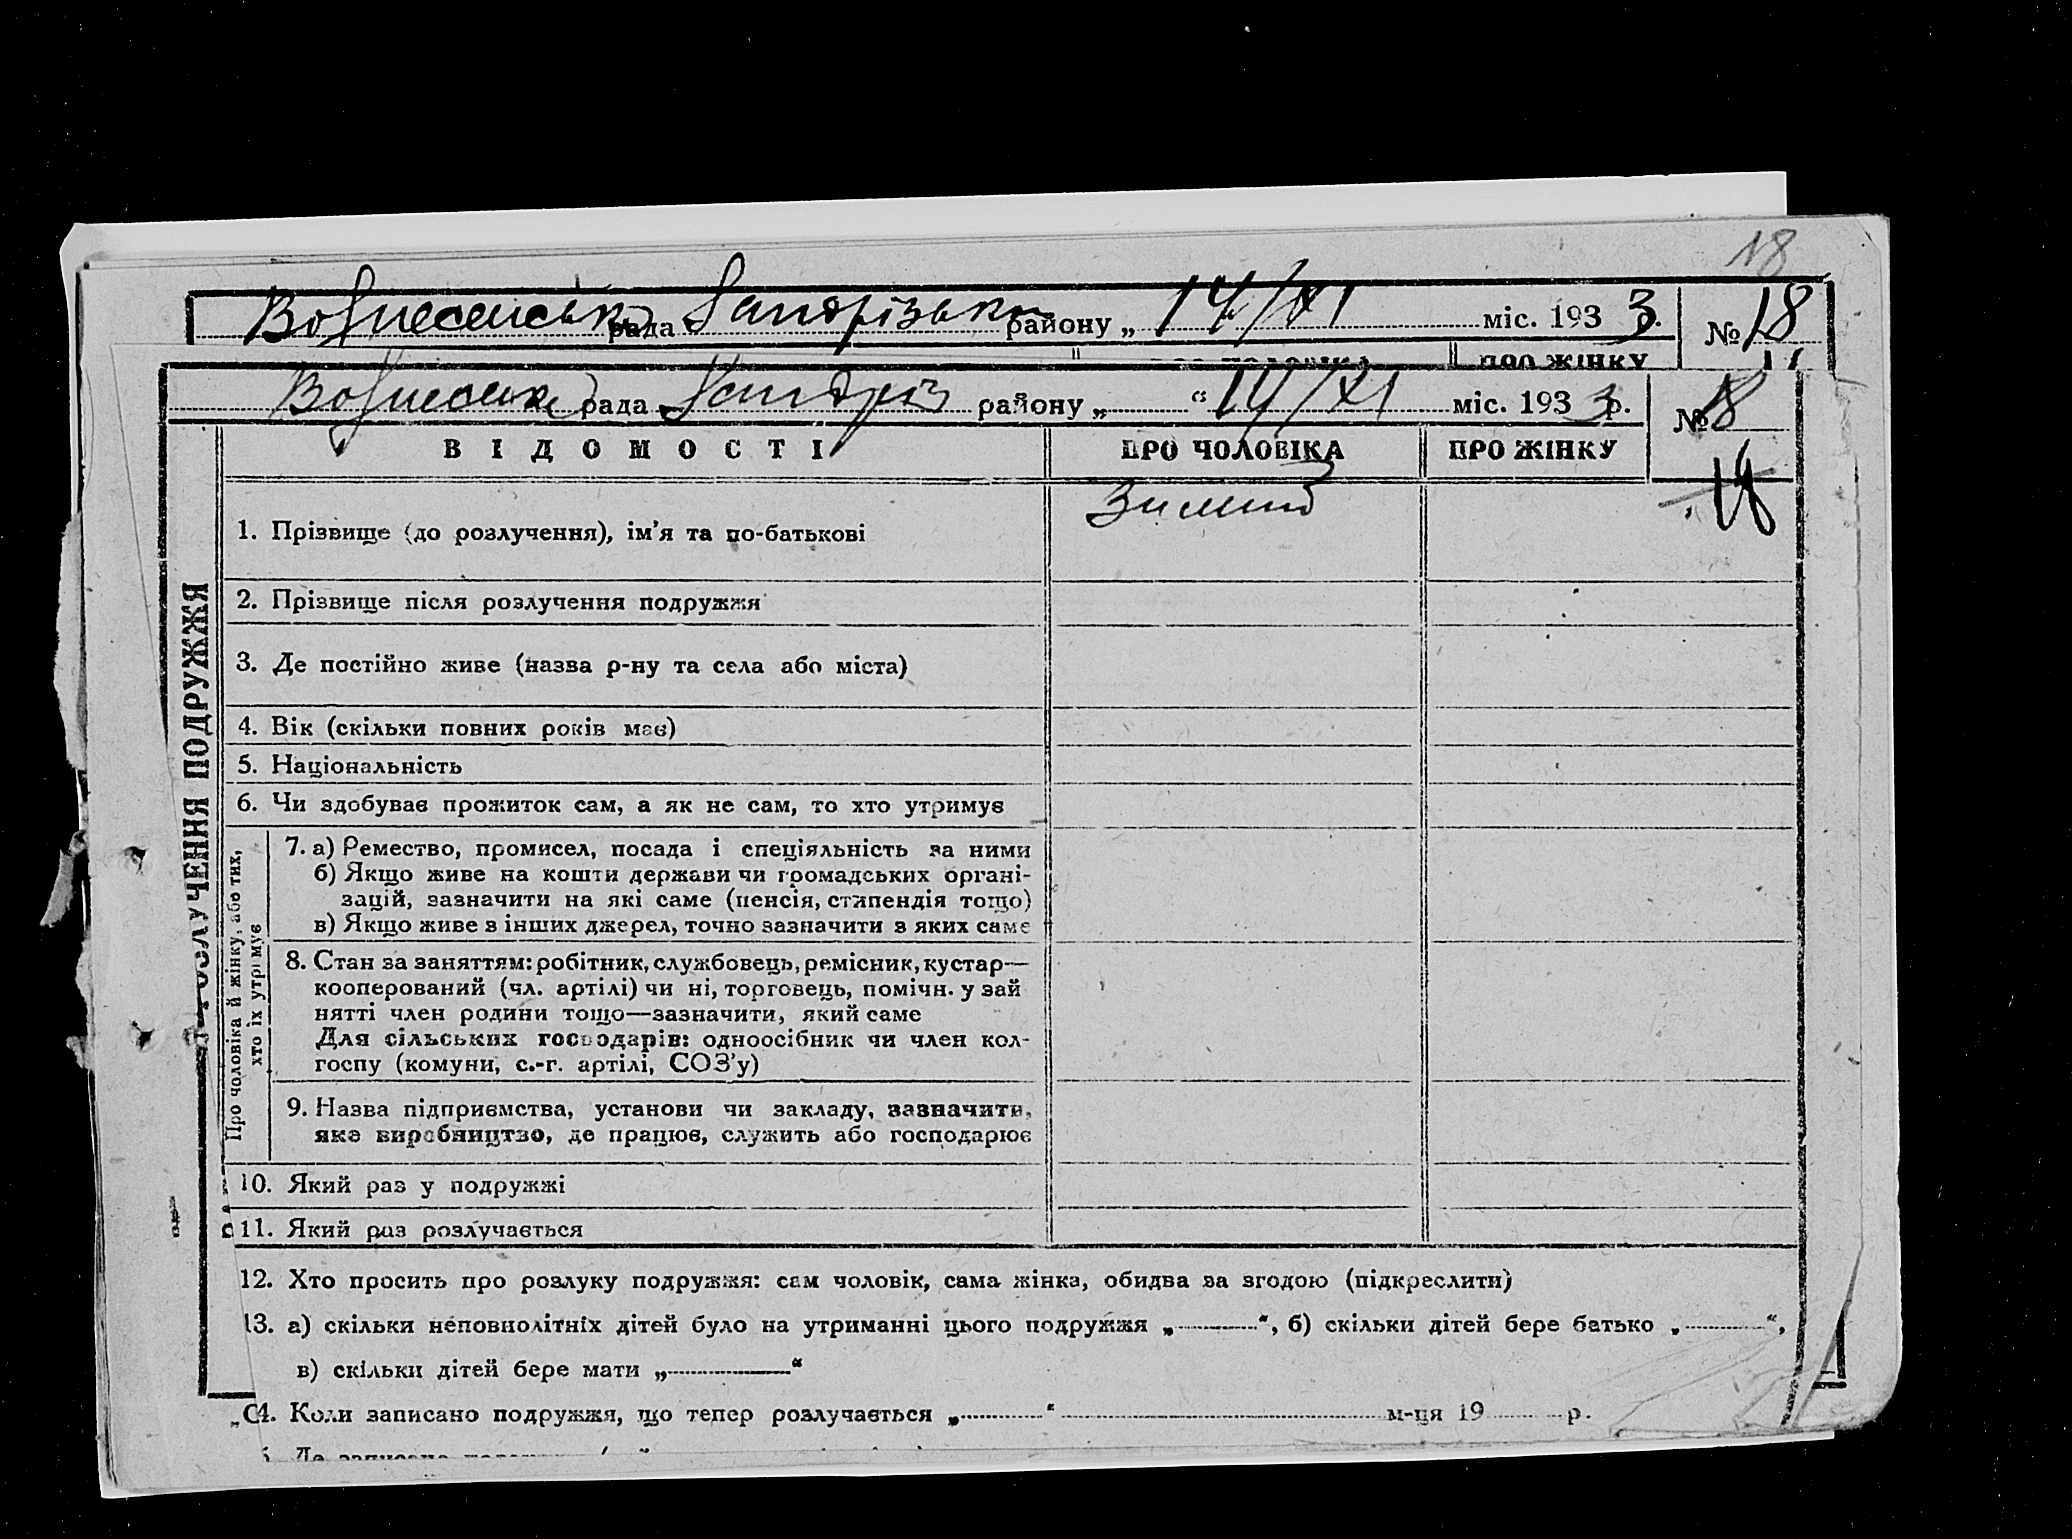 18
Вознесенська рада Запорізьки району „ 14/XI міс. 1933 р. № 18
ПРО ЖІНКУ
Вознесенська рада Запоріз району „ “ 14/XI міс. 1933 р. № 18
ВІДОМОСТІ ПРО ЧОЛОВІКА ПРО ЖІНКУ
18
РОЗЛУЧЕННЯ ПОДРУЖЖЯ
1. Прізвище (до розлучення), ім’я та по-батькові
2. Прізвище після розлучення подружжя
3. Де постійно живе (назва р-ну та села або міста)
4. Вік (скільки повних років має)
5. Національність
6. Чи здобуває прожиток сам, а як не сам, то хто утримує
Про чоловіка й жінку, або тих,
хто їх утримує
7. а) Ремество, промисел, посада і спеціяльність за ними
б) Якщо живе на кошти держави чи громадських органі-
зацій, зазначити на які саме (пенсія, стипендія тощо)
в) Якщо живе з інших джерел, точно зазначити з яких саме
8. Стан за заняттям: робітник, службовець, ремісник, кустар—
кооперований (чл. артілі) чи ні, торговець, помічн. у зай
нятті член родини тощо—зазначити, який саме
Для сільських господарів: одноосібник чи член кол-
госпу (комуни, с.-г. артілі, СОЗ’у)
9. Назва підприємства, установи чи закладу, зазначити,
яке виробництво, де працює, служить або господарює
10. Який раз у подружжі
11. Який раз розлучається
12. Хто просить про розлуку подружжя: сам чоловік, сама жінка, обидва за згодою (підкреслити)
13. а) скільки неповнолітніх дітей було на утриманні цього подружжя „ “, б) скільки дітей бере батько „ “,
в) скільки дітей бере мати „ “
14. Коли записано подружжя, що тепер розлучається „ “ м-ця 19 р.